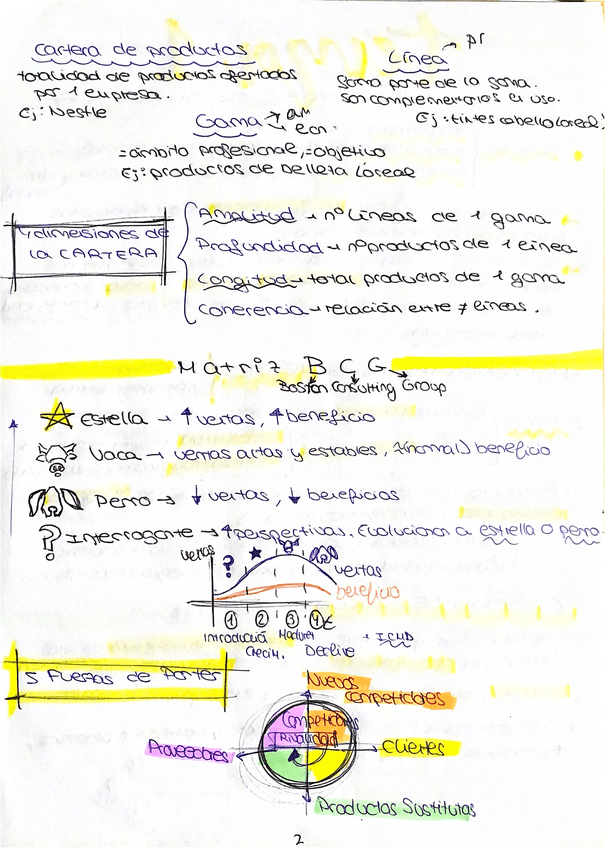 Cartera de productos
totalidad de productos ofertados
por 1 empresa.
Ej: Nestle
Línea → pr
Son complementarios en uso.
Ej: tintes cabello Loreal!
Gama → am
→ econ.
= ámbito profesional, = objetivo
Ej: productos de belleza Loreal
4 dimensiones de
LA CARTERA
Amplitud → nº líneas de 1 gama
Profundidad → nº productos de 1 línea
Longitud → total productos de 1 gama
Coherencia → relación entre ≠ líneas.
Matriz BCG
Boston Consulting Group
estrella → ↑ ventas, ↑ beneficio
Vaca → ventas altas y estables, (normal) beneficio
Perro → ↓ ventas, ↓ beneficios
? Interrogante → ↑ perspectivas. Evoluciona a estrella o perro.
ventas
?
ventas
beneficio
1 2 3 4 t
Introducció Madurez + ICMD
Crecim. Declive
5 Fuerzas de Porter
Nuevos
competidores
Competidores
Rivalidad
Proveedores
Clientes
Productos Sustitutos
2